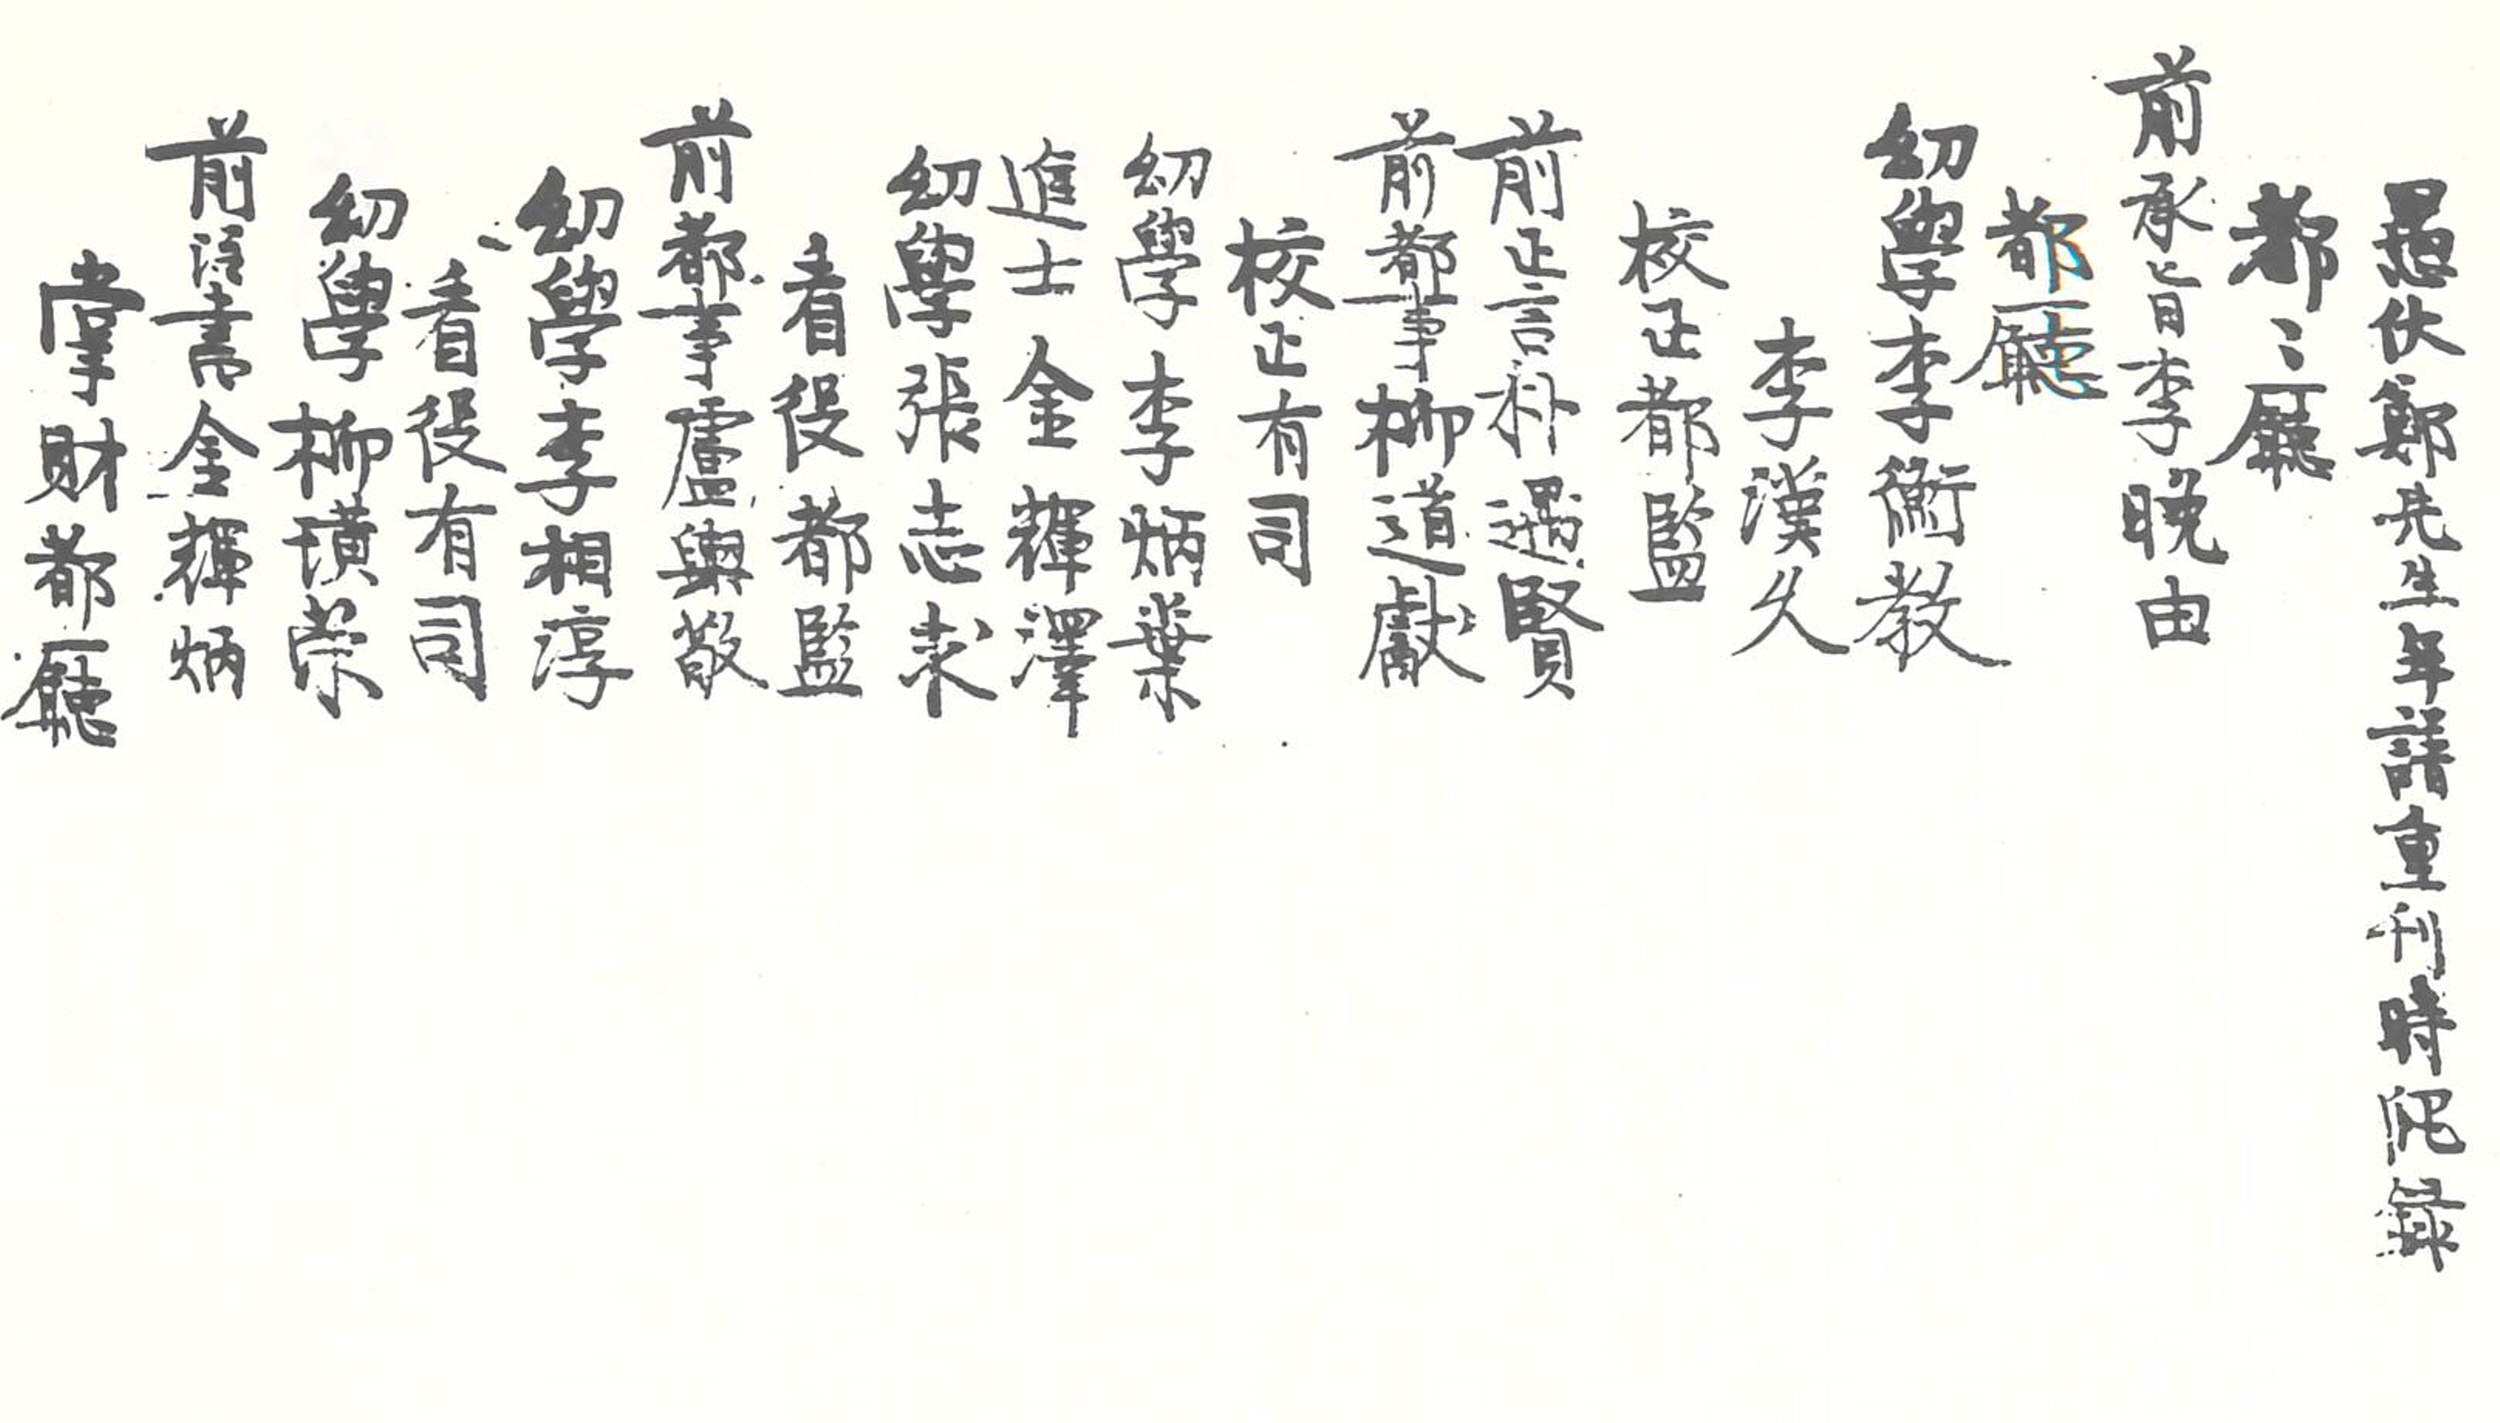 愚伏鄭先生年譜重刊時爬錄
都〻廳
前承旨李晩由
都廳
幼學李衡教
李漢久
校正都監
前正言朴遇賢
前都事柳道獻
校正有司
幼學李炳葉
進士金輝澤
幼學張志求
看役都監
前都事盧輿敬
幼學李相淳
看役有司
幼學柳璜榮
前書金輝炳
掌財都廳